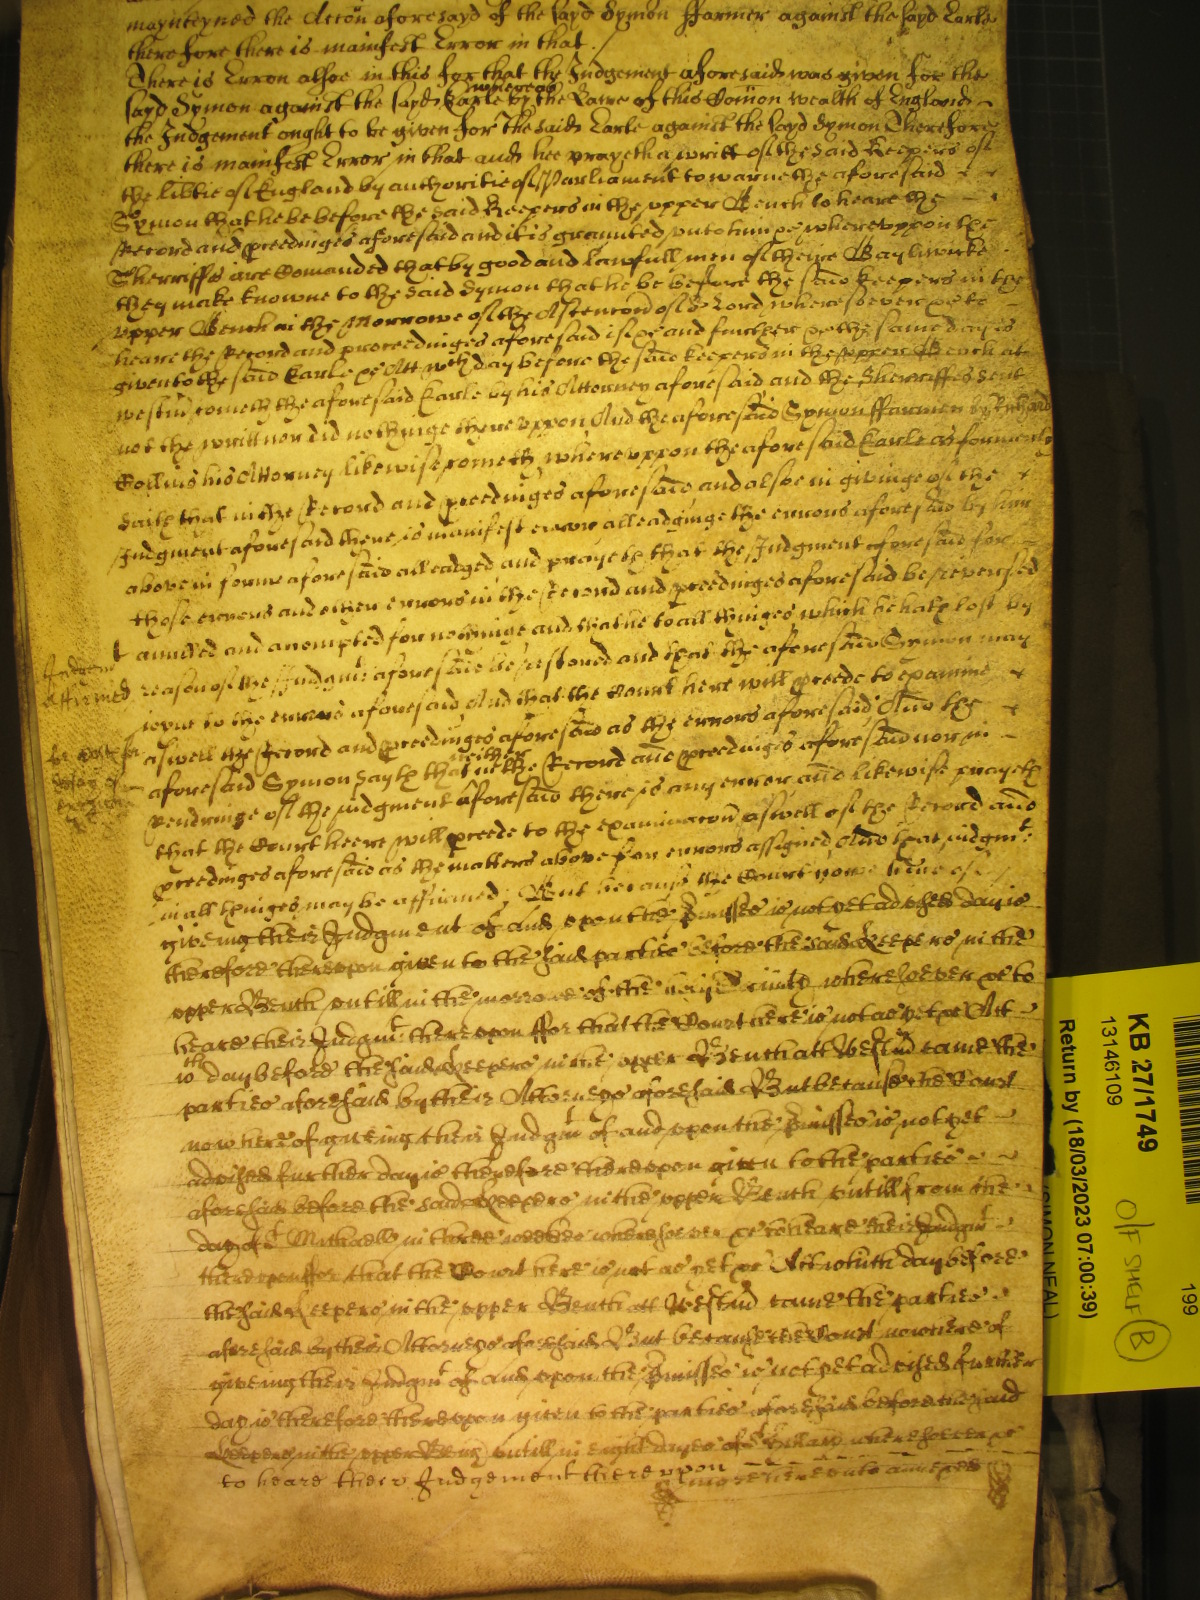 maynteyned the Accon aforesayd of the sayd Symon ffarmer against the sayd Earle
therefore there is manifest Error in that /
There is Error alsoe in this for that the Judgement aforesaid was given for the
sayd Symon against the sayd Earle whereas by the Lawe of this Comon wealth of England
the Judgement ought to be given for the said Earle against the sayd Symon Therefore
there is manifest Error in that and hee prayeth a writt of the said Keepers of
the libtie of England by authoritie of Parliament to warne the aforesaid
Symon that he be before the said Keepers in the upper Bench to heare the
Record and pceedinges aforesaid and it is graunted unto him &c whereuppon the
Sherriffes are Comanded that by good and lawfull men of theire Bayliwicke
they make knowne to the said Symon that he be before the said Keepers in the
upper Bench on the Morrowe of the Ascencon of the Lord wheresoever &c to
heare the Record and proceedinges aforesaid if &c and further &c the same day is
given to the said Earle &c Att wch day before the said Keepers in the upper Bench at
Westm cometh the aforesaid Earle by his Attorney aforesaid and the Sherriffes sent
not the writt nor did nothinge thereuppon And the aforesaid Symon ffarmer by Richard
Collins his Attorney likewise cometh whereuppon the aforesaid Earle as formerly
saith that in the Record and pceedinges aforesaid and alsoe in givinge of the
Judgment aforesaid there is manifest error alleadginge the errors aforesaid by him
above in forme aforesaid alleadged and prayeth that the Judgment aforesaid for
those errors and other errors in the Record and pceedinges aforesaid be reversed
anulled and accompted for nothinge and that he to all thinges which he hath lost by
Judgmt
affirmed
reason of the Judgmt aforesaid be restored and that the aforesaid Symon may
joyne to the errors aforesaid And that the Court here will pceede to examine
aswell the Record and pceedinges aforesaid as the errors aforesaid And the
aforesaid Symon sayth that neither in the Record and pceedinges aforesaid nor in
rendringe of the judgment aforesaid there is any error and likewise prayeth
that the Court heere will pceede to the examinacon aswell of the Record and
pceedinges aforesaid as the matters above for errors assigned And that judgmt
in all thinges may be affirmed; But because the Court nowe here of
giveing their Judgment of and upon the pmisses is not yet advised day is
therefore thereupon given to the said parties before the said Keepers in the
upper Bench untill in the morrowe of the holy Trinity wheresoever &c to
heare their Judgmt thereupon ffor that the Court here is not as yet &c Att
wch day before the said Keepers in the upper Bench att Westm came the
parties aforesaid by their Attorneys aforesaid But because the Court
now here of giveing their Judgmt of and upon the pmisses is not yet
advised further day is therefore thereupon given to the parties
aforesaid before the said Keepers in the upper Bench untill from the
day of St Michaell in three weekes wheresoever &c to heare their Judgmt
thereupon ffor that the Court here is not as yet &c Att which day before
the said Keepers in the upper Bench att Westm came the parties
aforesaid by their Attorneys aforesaid But because the Court now here of
giveing their Judgmt of and upon the pmisses is not yet advised further
day is therefore thereupon given to the parties aforesaid before the said
Keepers in the upper Bench untill in eight dayes of St Hillary wheresoever &c
to heare their Judgement thereupon more hereunto annexed
KB 27/1749
13146109
Return by (18/03/2023 07:00:39)
(SIMON NEAL)
199
B